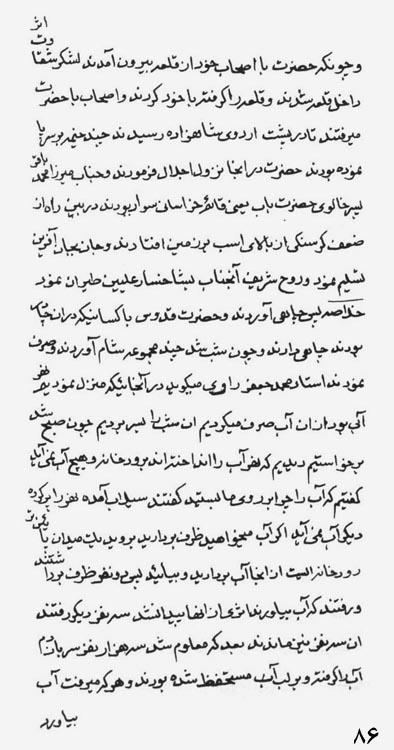 و چونکه حضرت با اصحاب خود از قلعه بیرون آمدند لشکر شقاوت اثر
داخل قلعه شدند و قلعه را گرفته باخود کردند و اصحاب با حضرت
میرفتند تا در پشت اردوی شاهزاده رسیدند چند خیمه بر سر پا
نموده بودند حضرت در آنجا نزول اجلال فرمودند و جناب میرزا محمد باقر
پسر خالوی حضرت باب یعنی قائن خراسان سوار بودند در بین راه از
ضعف گرسنگی از بالای اسب بزمین افتادند و جان بجان آفرین
تسلیم نمود و روح شریف آنجناب بشاخسار علیین طیران نمود
خلاصه پس چاهی آوردند و حضرت قدوس با کسانیکه در ان
بودند چاهی دارند و چون شب شد چند مجموعه شام آوردند و صرف
نمودند استاد محمد جعفر راوی میگوید در آنجائیکه منزل نمودیم نهر
آبی بود از ان آب صرف میکردیم ان شب را بسر بردیم چون صبح شد
برخواستیم دیدیم که نهر آب را انداختند برودخانه و هیچ آب نمی آید
گفتیم که آب را چرا بروی ما بستید گفتند سیلاب آمده نهر را پر کرده
دیگر آب نمی آید اگر آب میخواهید ظرف بردارید بروید یک میدان پا
رودخانه است از انجا آب بردارید و بیائید پس دو نفر ظرف برداشتند
و رفتند که آب بیاورند اثری از انها پیدا نشد سه نفر دیگر رفتند
ان سه نفر نیز ماندند بعد که معلوم شد سه هزار نفر سرباز دم
آب را گرفته و بر لب آب مستحفظ شده بودند و هر که میرفت آب
بیاورد
۸۶